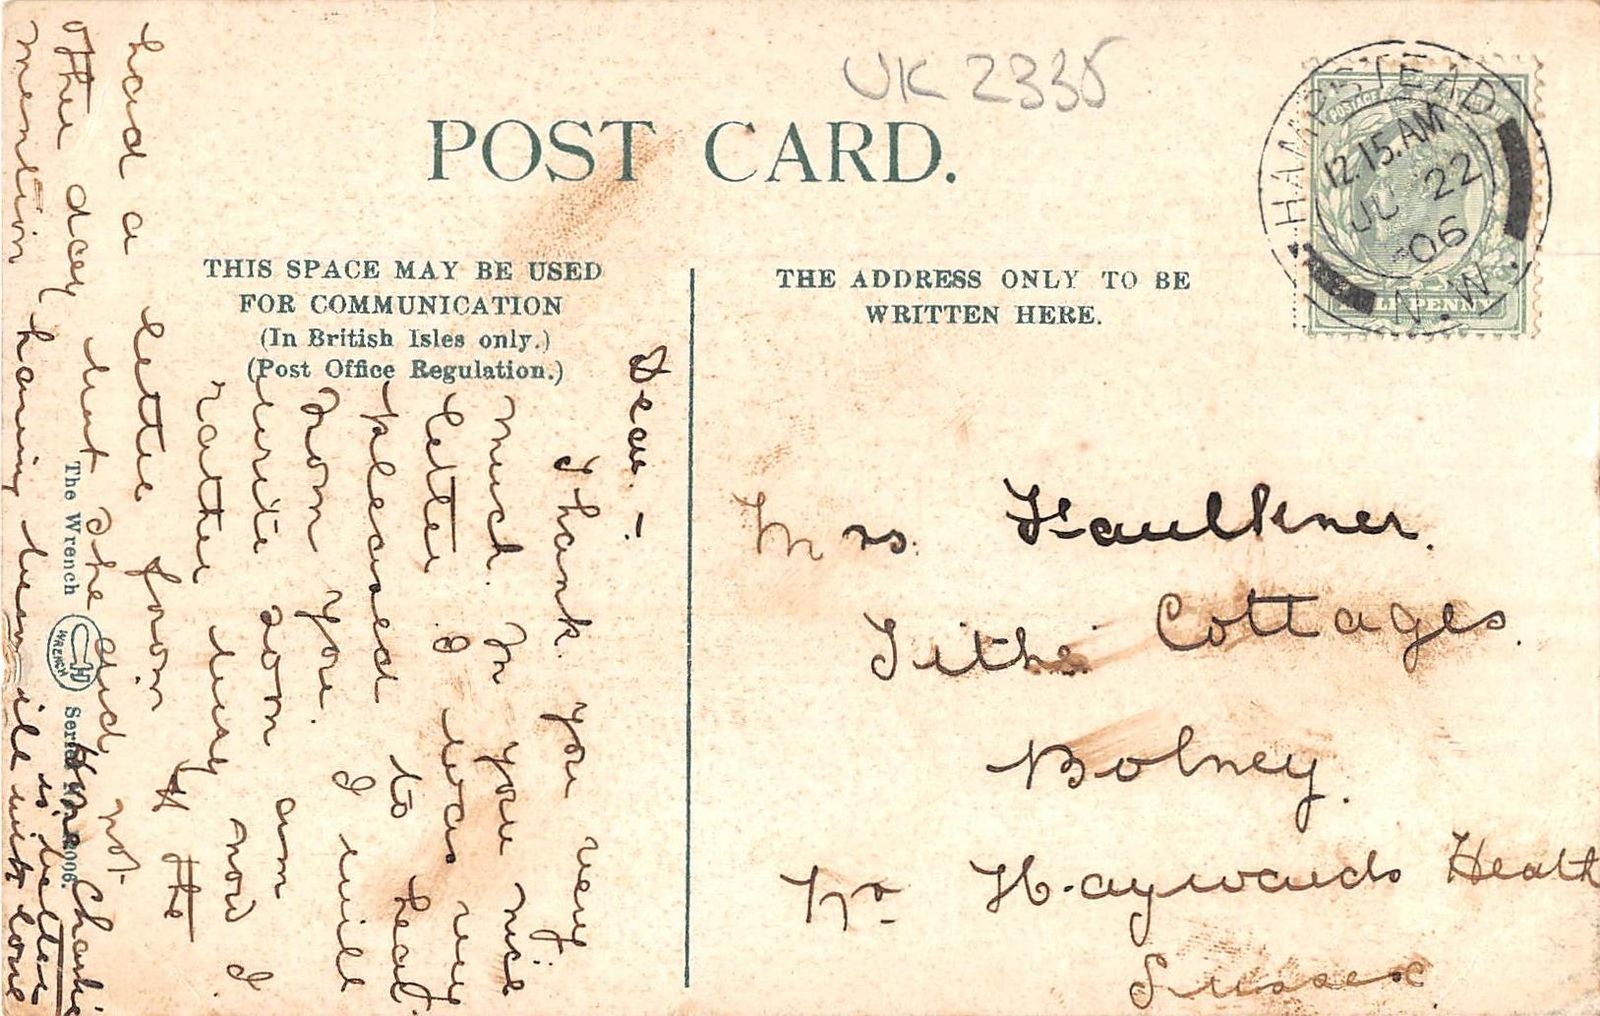 UK 2335
POST CARD.
HAMPSTEAD
12.15.AM
JU 22
06
N.W.
POSTAGE
HALFPENNY
THIS SPACE MAY BE USED
FOR COMMUNICATION
(In British Isles only.)
(Post Office Regulation.)
THE ADDRESS ONLY TO BE
WRITTEN HERE.
Mrs Faulkner.
Tithe Cottages.
Bolney.
Nr Haywards Heath
Sussex.
Dear -
Thank you very
much for your nice
letter. I was very
pleased to hear
from you. I will
write soon am
rather busy now I
had a letter from the
other day but she did not
mention having been ill with love
Hope Charlie
is better
The Wrench
WRENCH
Series No. 2006.